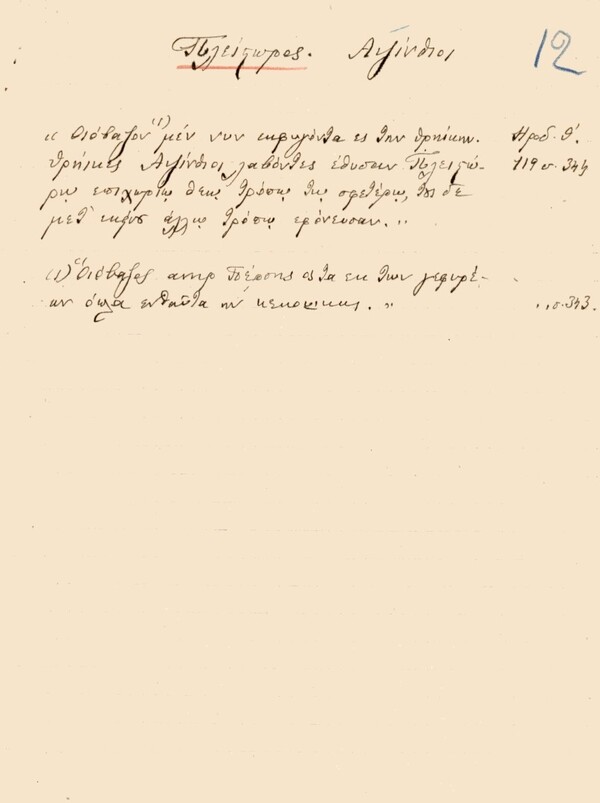 Πλείςωρος. Αψίνθιοι
12
« Οιόβαζον(1) μέν νυν εκφυγόντα ες την Θρηίκην. Ηροδ. θ'.
Θρήικες Αψίνθιοι λαβόντες έθυσαν Πλειςώ- 119 σ. 344
ρῳ επιχωρίῳ θεῳ τρόπῳ τῳ σφετέρῳ, τους δε
μετ' εκείνου άλλῳ τρόπῳ εφόνευσαν. „
(1) “Οιόβαζος ανηρ Πέρσης ος τα εκ των γεφυρέ-
ων όπλα ενθαύτα ην κεκομικως. „ „ σ. 343.